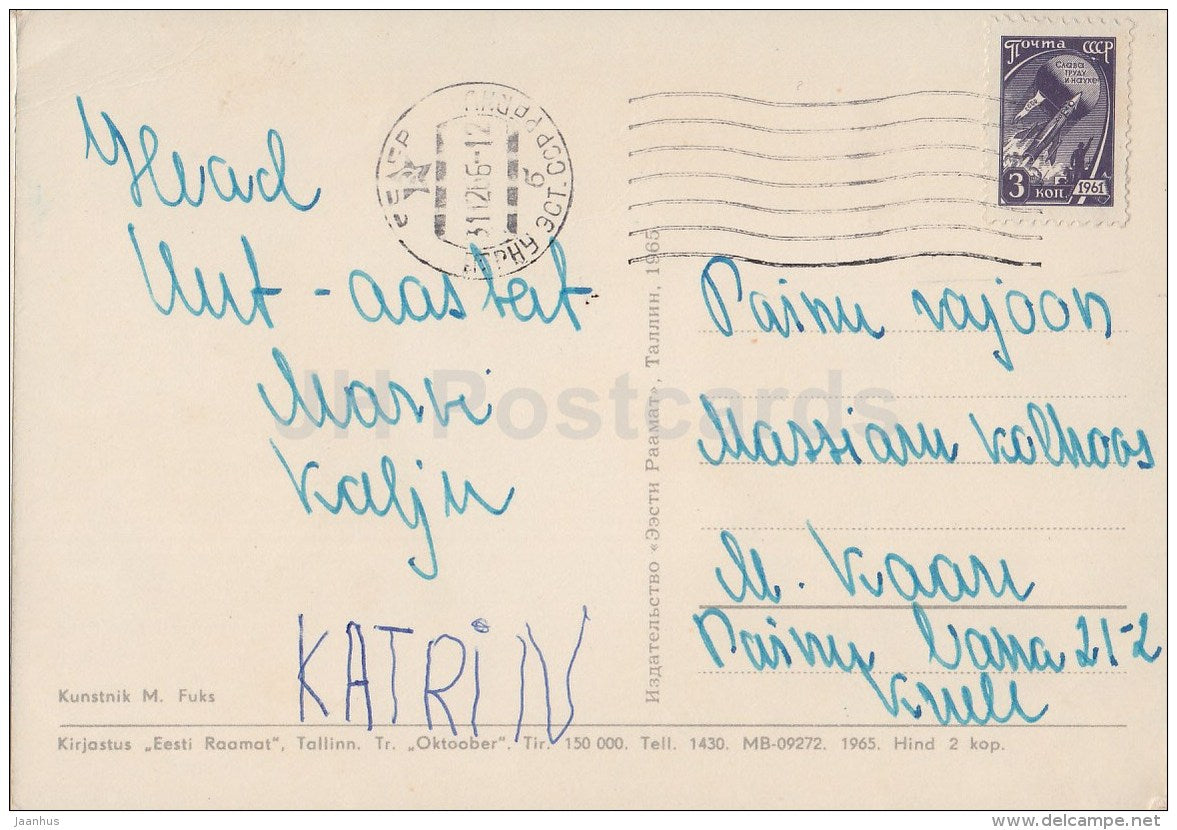 Почта СССР
Слава
труду
и науке
3 коп
1961
ПЯРНУ ЭСТ. ССР PÄRNU
6
Head
Uut-aastat
Marvi
Kalju
KATRIN
Kunstnik M. Fuks
Издательство «Ээсти Раамат», Таллин, 1965
Pärnu rajoon
Massiaru
M. Kaaru
Pärnu Vana 21-2
Kirjastus „Eesti Raamat", Tallinn. Tr. „Oktoober". Tir. 150 000. Tell. 1430. MB-09272. 1965. Hind 2 kop.
JH Postcards
Jaanhus
www.delcampe.net